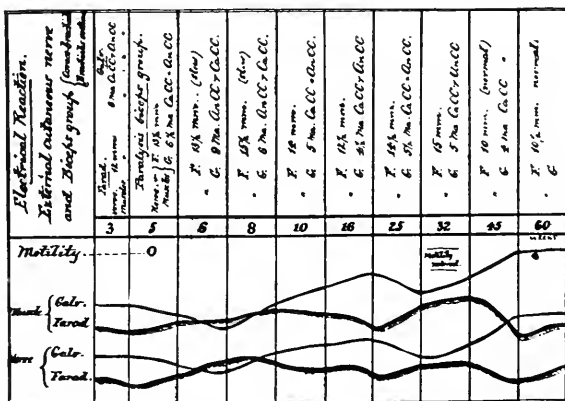 Electrical Reaction.
External cutaneous nerve
and Biceps group
Farad. Galv.
nerve. 12 mm 8 Ma CaCC > AnCC
muscle
Paralysis biceps group.
Nerve. F. 13½ mm.
Muscle G. 6½ Ma CaCC = AnCC
F. 13½ mm. (slow)
" G. 8 Ma. AnCC > CaCC
F. 13½ mm. (slow)
" G. 6 Ma. AnCC > CaCC
F. 12 mm.
" G. 5 Ma CaCC = AnCC.
F. 12½ mm.
" G. 4½ Ma CaCC > AnCC.
F. 14½ mm.
" G. 5½ Ma. CaCC = AnCC.
F. 15 mm.
" G. 8 Ma CaCC > AnCC
F. 10 mm. (normal)
" G. 2 Ma CaCC "
F. 10½ mm. normal.
" G "
3 5 6 8 10 16 25 32 45 60
Motility 0
Motility
Muscle Galv.
Farad
Nerve Galv.
Farad.